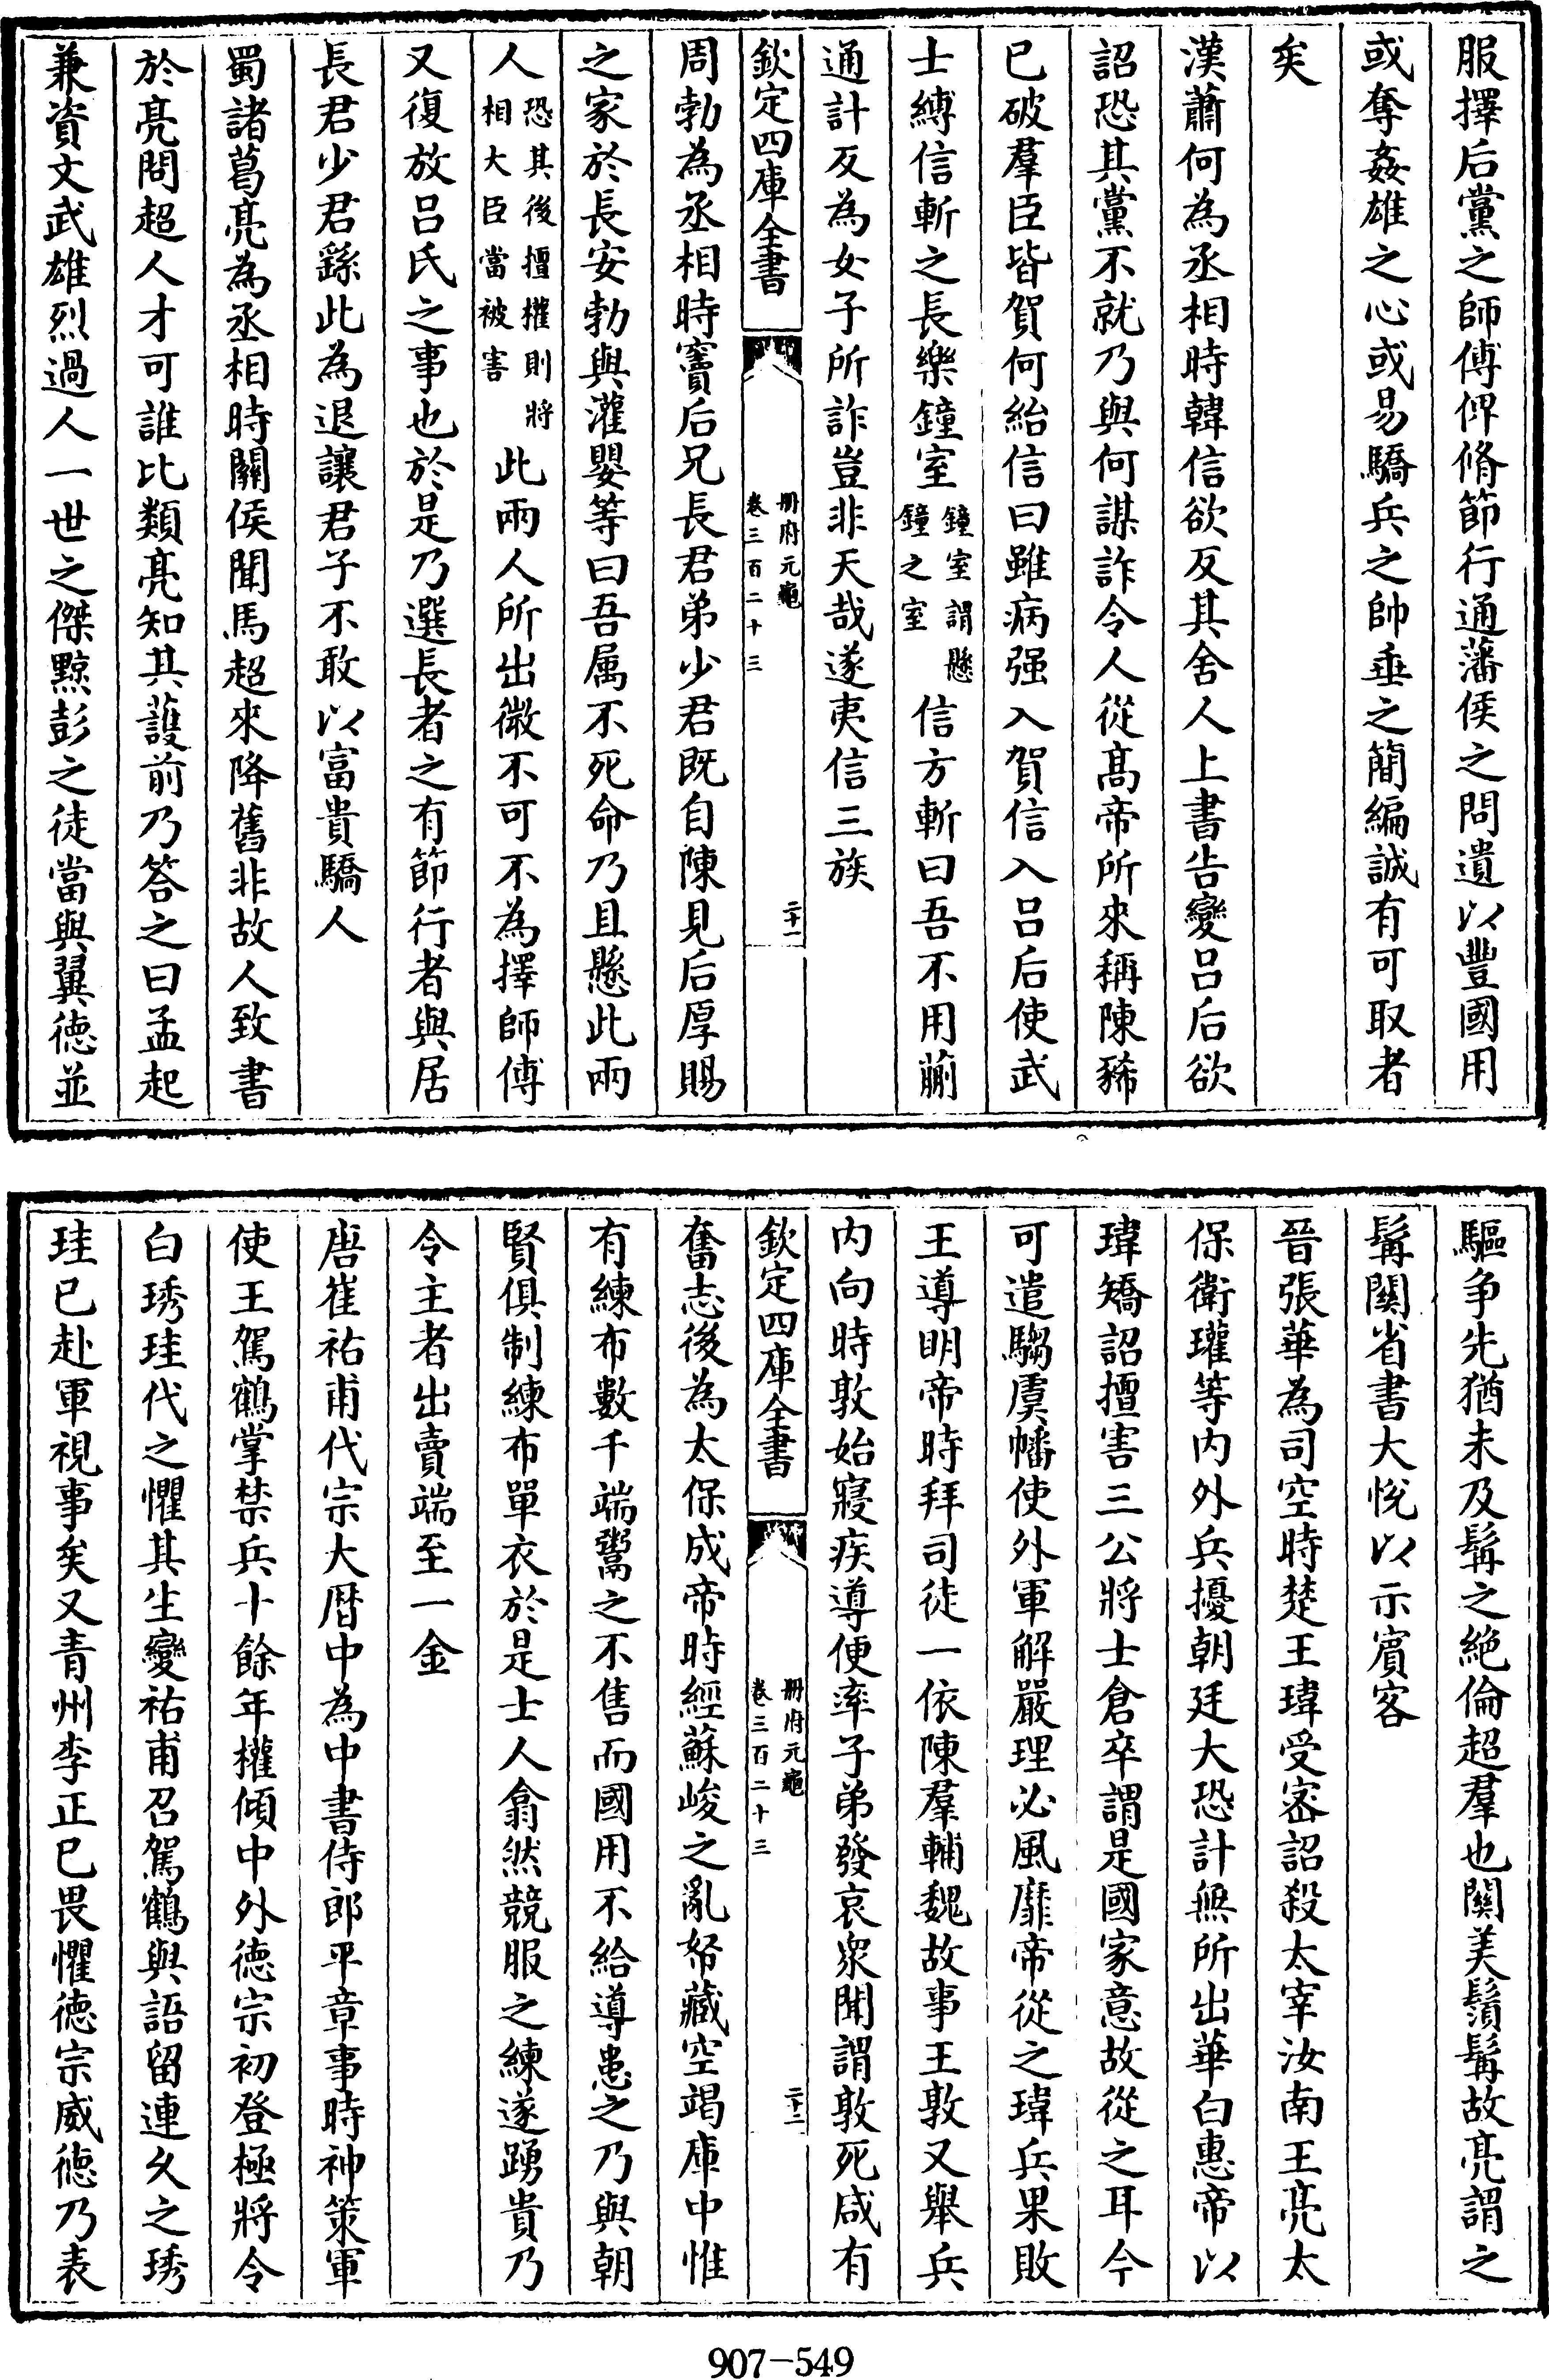 服擇后黨之師傅俾脩節行通藩侯之問遺以豐國用
或奪姦雄之心或易驕兵之帥垂之簡編誠有可取者
矣
漢蕭何為丞相時韓信欲反其舍人上書告變吕后欲
詔恐其黨不就乃與何謀詐令人從髙帝所來稱陳豨
已破羣臣皆賀何紿信曰雖病强入賀信入吕后使武
士縛信斬之長樂鐘室鐘室謂懸鐘之室信方斬曰吾不用蒯
通計反為女子所詐豈非天哉遂夷信三族
欽定四庫全書 冊府元龜 卷三百二十三 二十一
周勃為丞相時竇后兄長君弟少君既自陳見后厚賜
之家於長安勃與灌嬰等曰吾属不死命乃且懸此兩
人恐其後擅權則將相大臣當被害此兩人所出微不可不為擇師傅
又復放吕氏之事也於是乃選長者之有節行者與居
長君少君繇此為退讓君子不敢以富貴驕人
蜀諸葛亮為丞相時關侯聞馬超來降舊非故人致書
於亮問超人才可誰比類亮知其䕶前乃答之曰孟起
兼資文武雄烈過人一世之傑黥彭之徒當與翼徳並
驅争先猶未及髯之絶倫超羣也關美鬚髯故亮謂之
髯關省書大悦以示賓客
晉張華為司空時楚王瑋受密詔殺太宰汝南王亮太
保衛瓘等内外兵擾朝廷大恐計無所出華白惠帝以
瑋矯詔擅害三公將士倉卒謂是國家意故從之耳今
可遣騶虞幡使外軍解嚴理必風靡帝從之瑋兵果敗
王導明帝時拜司徒一依陳羣輔魏故事王敦又舉兵
内向時敦始寢疾導便率子弟發哀衆聞謂敦死咸有
欽定四庫全書 冊府元龜 卷三百二十三 二十二
奮志後為太保成帝時經蘇峻之亂帑藏空竭庫中惟
有練布數千端鬻之不售而國用不給導患之乃與朝
賢俱制練布單衣於是士人翕然競服之練遂踴貴乃
令主者出賣端至一金
唐崔祐甫代宗大曆中為中書侍郎平章事時神策軍
使王駕鶴掌禁兵十餘年權傾中外徳宗初登極將令
白琇珪代之懼其生變祐甫召駕鶴與語留連久之琇
珪已赴軍視事矣又青州李正已畏懼徳宗威徳乃表
907-549